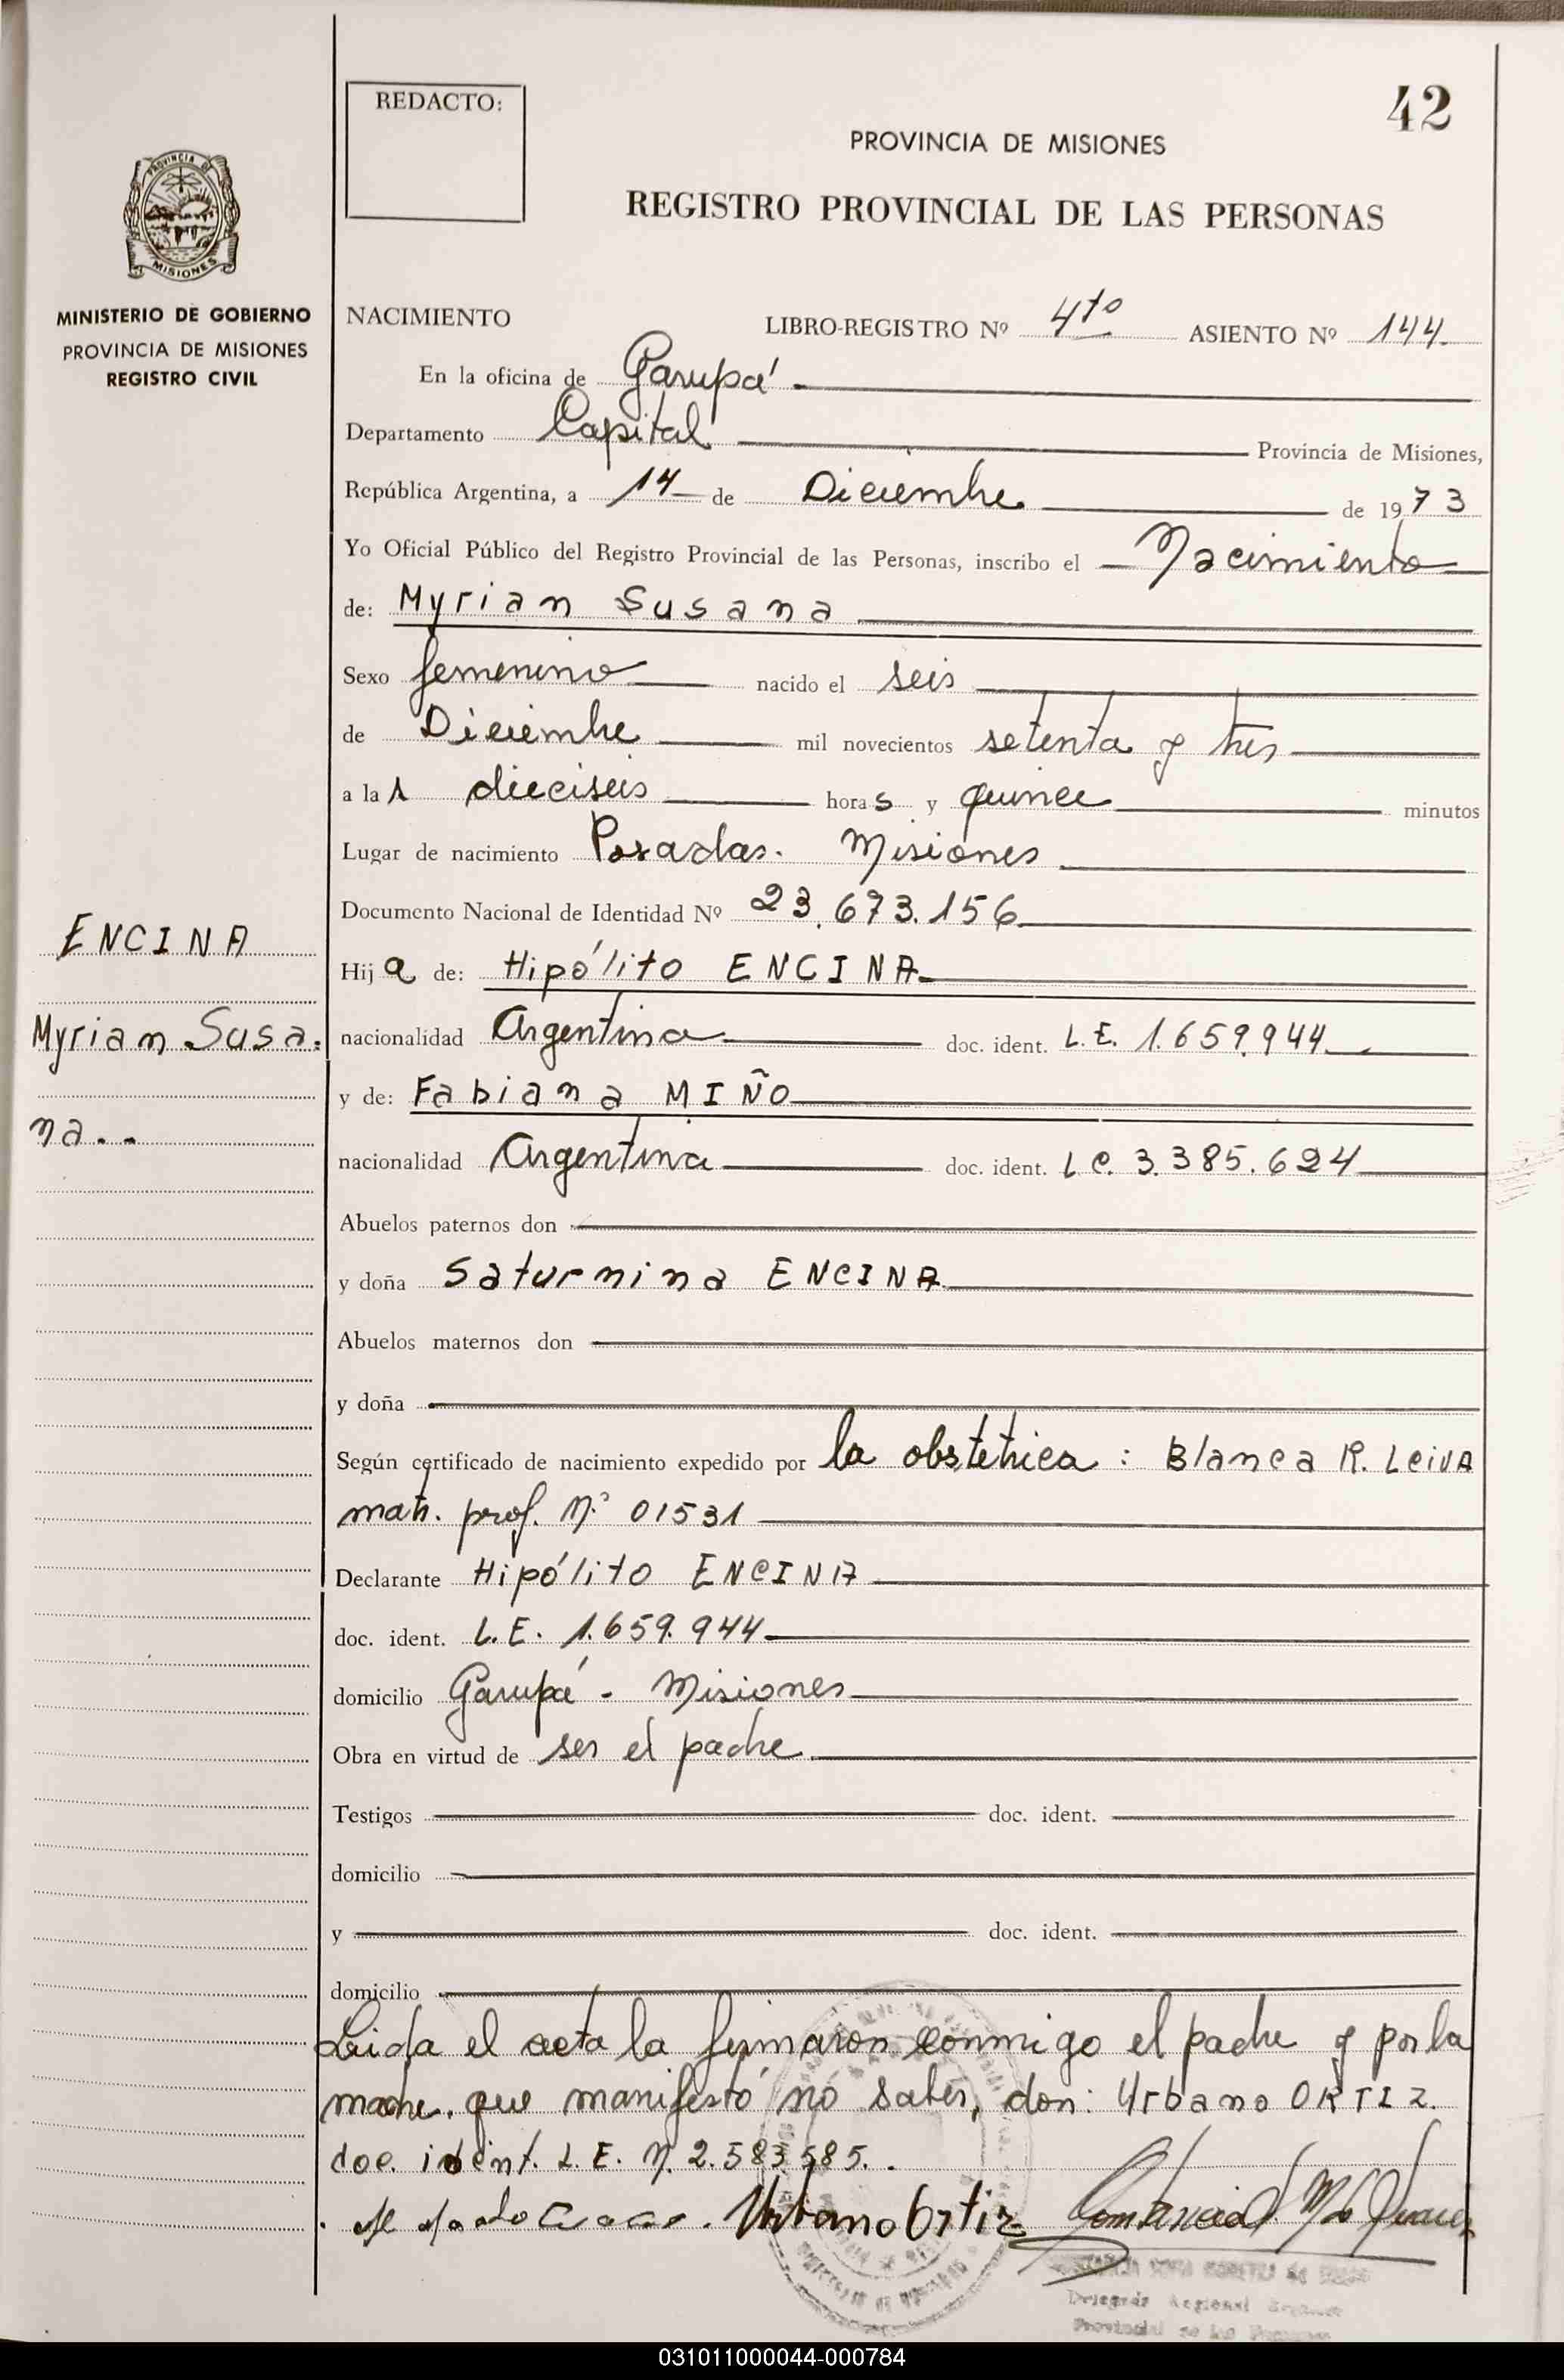 REDACTO:
42
PROVINCIA DE MISIONES
REGISTRO PROVINCIAL DE LAS PERSONAS
PROVINCIA DE
MISIONES
MINISTERIO DE GOBIERNO
PROVINCIA DE MISIONES
REGISTRO CIVIL
NACIMIENTO LIBRO-REGISTRO Nº 4to ASIENTO Nº 144
En la oficina de Garupá
Departamento Capital Provincia de Misiones,
República Argentina, a 14 de Diciembre de 1973
Yo Oficial Público del Registro Provincial de las Personas, inscribo el Nacimiento
de: Myrian Susana
Sexo femenino nacido el seis
de Diciembre mil novecientos setenta y tres
a las dieciseis horas y quince minutos
Lugar de nacimiento Posadas. Misiones
Documento Nacional de Identidad Nº 23.673.156
ENCINA
Hija de: Hipólito ENCINA
Myrian Susa-
nacionalidad Argentina doc. ident. L.E. 1.659.944
y de: Fabiana MIÑO
na..
nacionalidad Argentina doc. ident. L.C. 3.385.624
Abuelos paternos don
y doña Saturnina ENCINA
Abuelos maternos don
y doña
Según certificado de nacimiento expedido por la obstetrica: Blanca R. LeivA
matr. prof. Nº 01531
Declarante Hipólito ENCINA
doc. ident. L.E. 1.659.944
domicilio Garupá - Misiones
Obra en virtud de ser el padre
Testigos doc. ident.
domicilio
y doc. ident.
domicilio
Leida el acta la firmaron conmigo el padre y por la
madre, que manifestó no saber, don: Urbano ORTIZ.
doc. ident. L.E. Nº 2.583.585..
Urbano Ortiz
Delegada Regional Registro
Provincial de las Personas
031011000044-000784